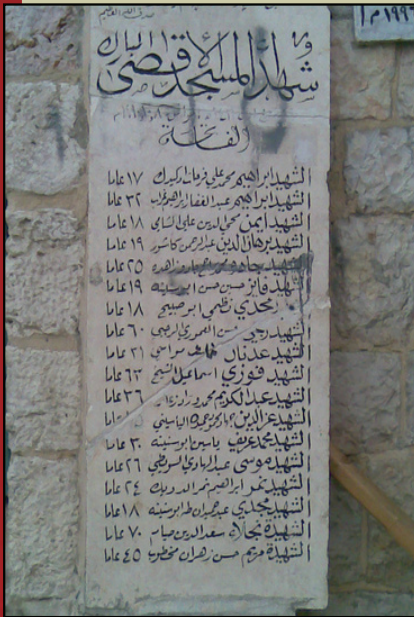 صدق الله العظيم
١٩٩٠م
شهداء المسجد الأقصى المبارك
الفاتحة
الشهيد ابراهيم محمد علي فرحات ١٧ عاما
الشهيد ابراهيم عبد الغفار ابراهيم ٣٢ عاما
الشهيد ايمن محي الدين علي الشامي ١٨ عاما
الشهيد برهان الدين عبد الرحمن كاشور ١٩ عاما
الشهيد زاهده ٢٥ عاما
الشهيد فايز حسين حسن ابو سنينه ١٩ عاما
مجدي نظمي ابو صبيح ١٨ عاما
الشهيد ربحي حسن العموري الرجبي ٦٠ عاما
الشهيد عدنان مواسي ٣١ عاما
الشهيد فوزي اسماعيل الشيخ ٦٣ عاما
الشهيد عبد الكريم محمد ٣٦ عاما
الشهيد عز الدين الياسيني
الشهيد محمد عريف ياسين ابو سنينه ٣٠ عاما
الشهيد موسى عبد الهادي السويطي ٢٦ عاما
الشهيد نمر ابراهيم نمر الدويك ٢٤ عاما
الشهيد مجدي ابو سنينه ١٨ عاما
الشهيدة نجلاء سعد الدين صيام ٧٠ عاما
الشهيدة مريم حسن زهران مخطوب ٤٥ عاما